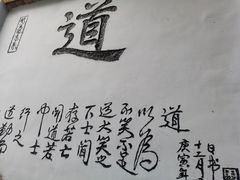 道
道勤而
行之
中士
聞道若
存若亡
下士聞
道大笑之
不笑不足
以為
道
庚寅年
十二月
日书